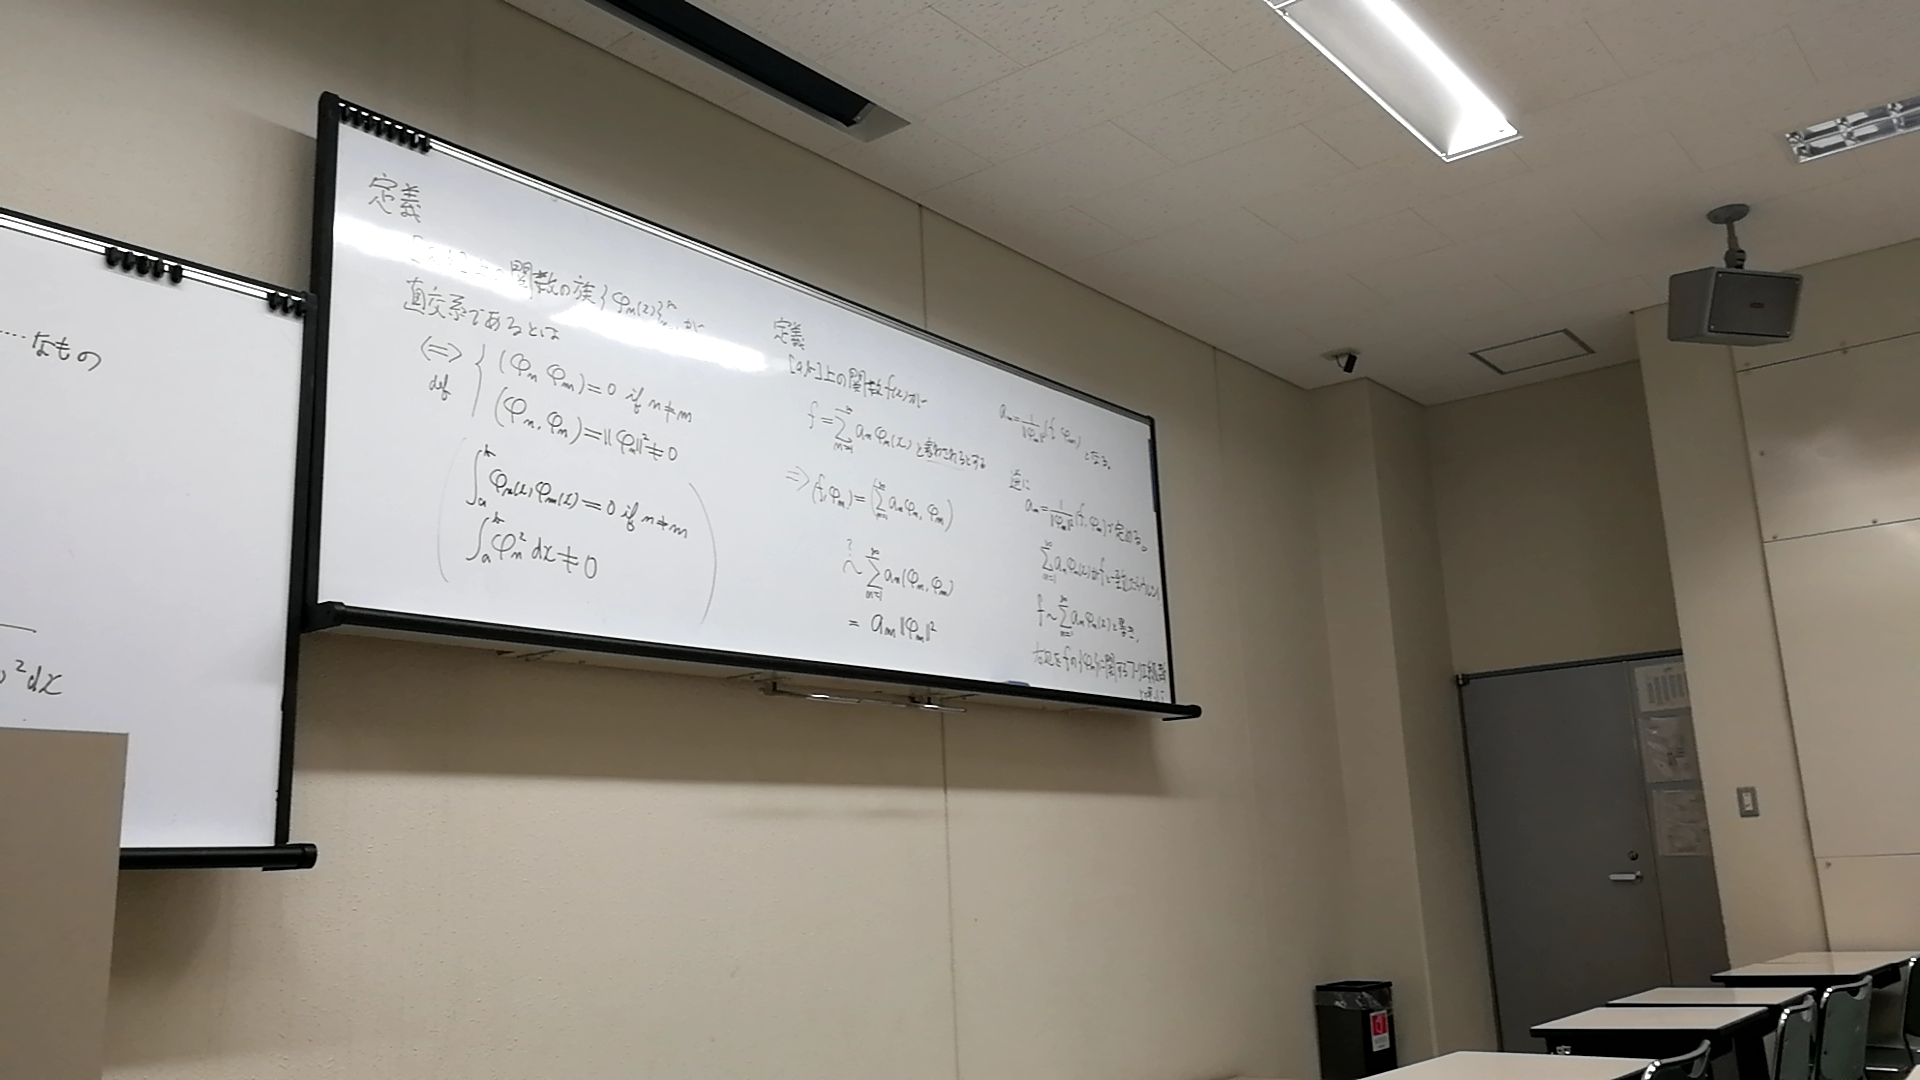 ……なもの
²dx
定義
[a,b]上の関数の族{φn(x)}∞n=1が
直交系であるとは
⟺ def { (φn, φm)=0 if n≠m
(φn, φn)=‖φn‖²≠0
∫ₐᵇ φn(x)φm(x)=0 if n≠m
∫ₐᵇ φn² dx≠0
定義
[a,b]上の関数f(x)が
f=∑∞n=1 anφn(x)と書わされるとする
⇒(f,φm)=(∑∞n=1 anφn, φm)
?
〜∑∞n=1 an(φn, φm)
= am‖φm‖²
am=1/‖φm‖²(f, φm)となる。
逆に
am=1/‖φm‖²(f, φm)で定める。
∑∞n=1 anφn(x)がfと一致
f〜∑∞n=1 anφn(x)と書き、
右辺をfの{φn}に関するフーリエ級数